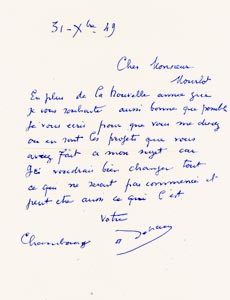 31-Xbre 49
Cher Monsieur
Mourlot
En plus de la Nouvelle année que
je vous souhaite aussi bonne que possible
Je vous écris pour que vous me disiez
où en sont les projets que vous
avez fait à mon sujet car
je voudrais bien changer tout
ce qui ne serait pas commencé et
peut être aussi ce qui l'est
votre
Chambourcy